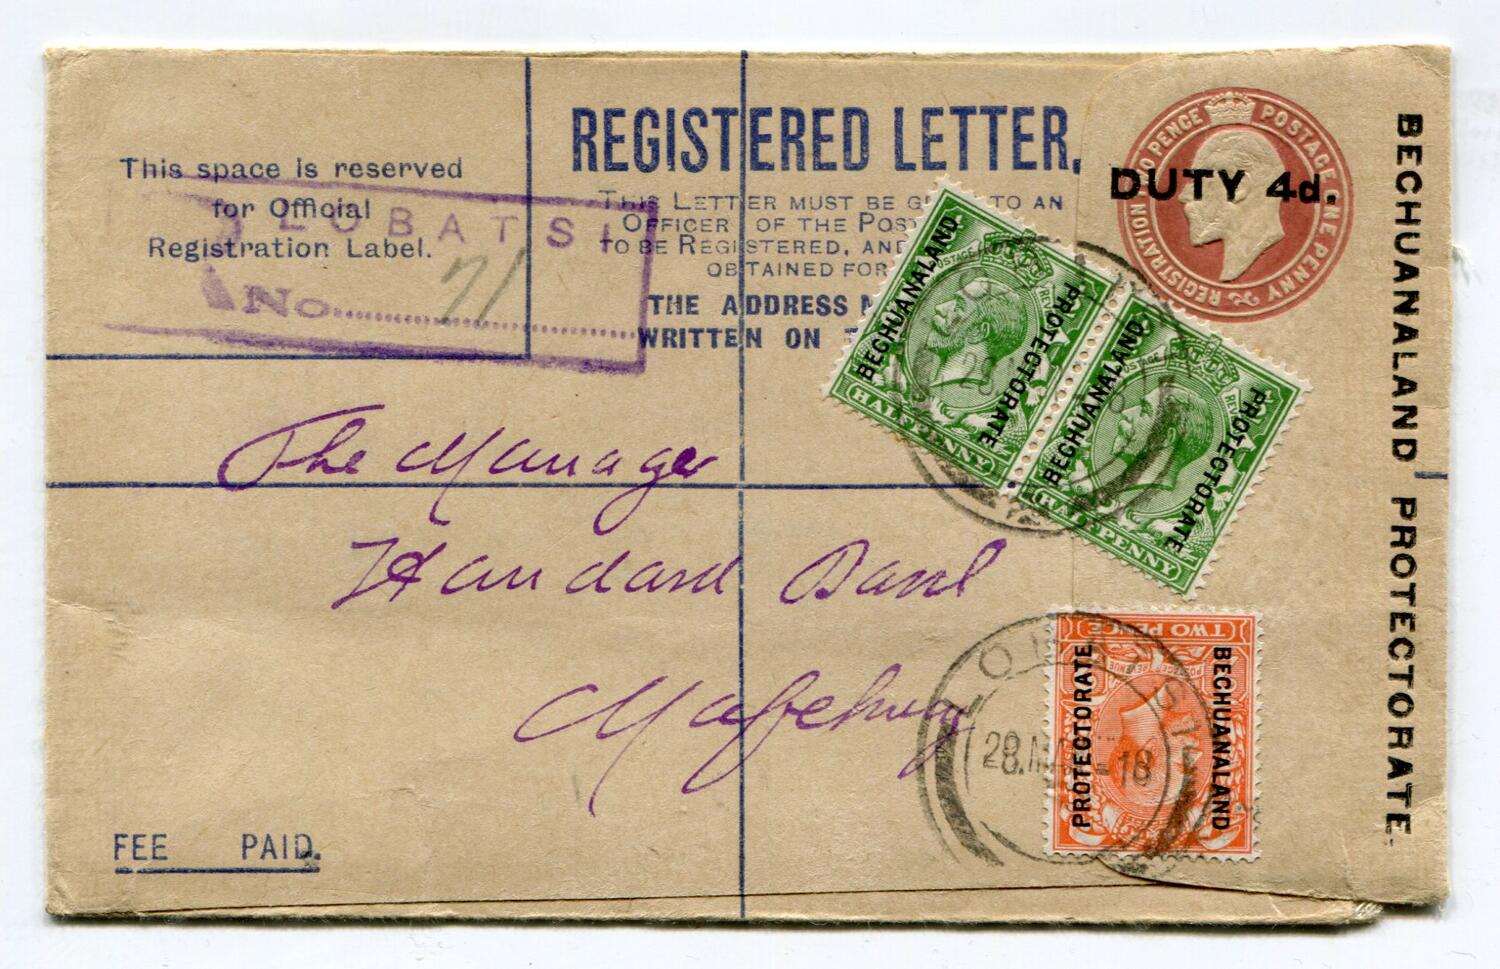 This space is reserved
for Official
Registration Label.
LOBATSI
No. 71
REGISTERED LETTER.
THIS LETTER MUST BE TO AN
OFFICER OF THE POS
TO BE REGISTERED, AND
OBTAINED FOR
THE ADDRESS
WRITTEN ON
REGISTRATION TWO PENCE POSTAGE ONE PENNY
DUTY 4d.
BECHUANALAND PROTECTORATE.
BECHUANALAND
PROTECTORATE
HALFPENNY
BECHUANALAND
PROTECTORATE
HALFPENNY
The Manager
Standard Bank
Mafeking
TWO PENCE
POSTAGE REVENUE
PROTECTORATE
BECHUANALAND
LOBATSI
28.MA -18
FEE PAID.